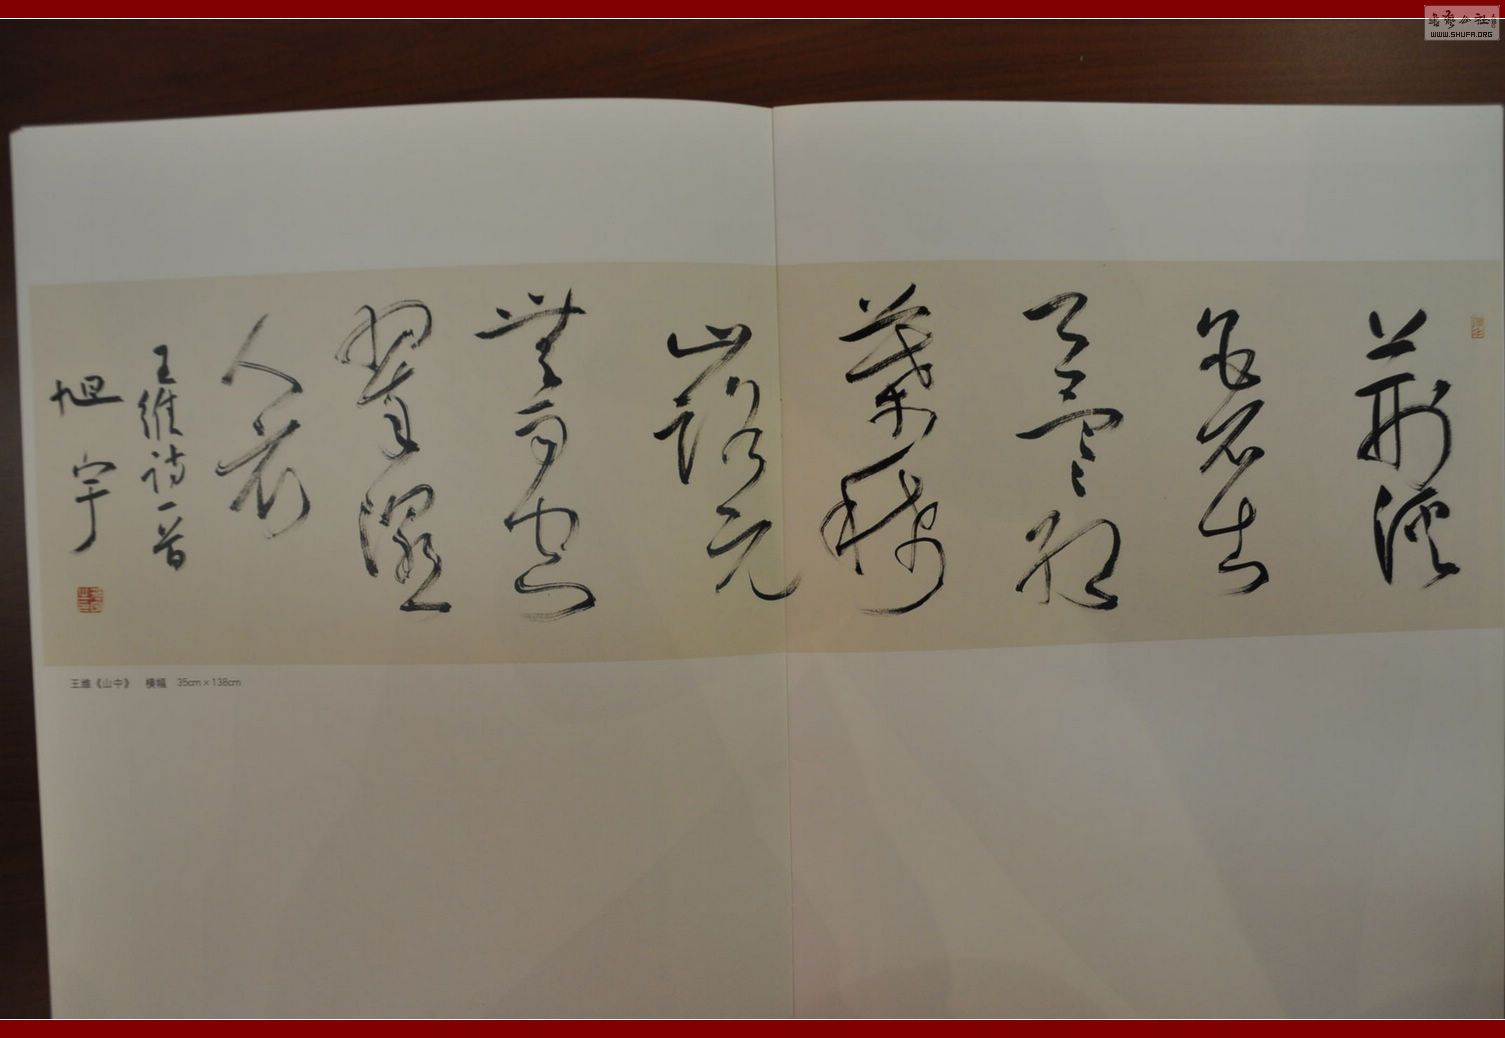 荆溪
白石出
天寒红
葉稀
山路元
無雨空
翠濕
人衣
王維诗一首
旭宇
王维《山中》 横幅 35cm×138cm
WWW.SHUFA.ORG